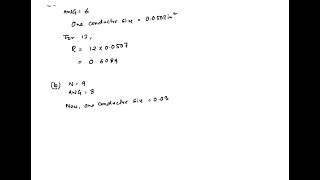 AWG = 6
One conductor size = 0.0507 in²
For 12,
R = 12 × 0.0507
= 0.6084
(b) N = 9
AWG = 8
Now, one conductor size = 0.03